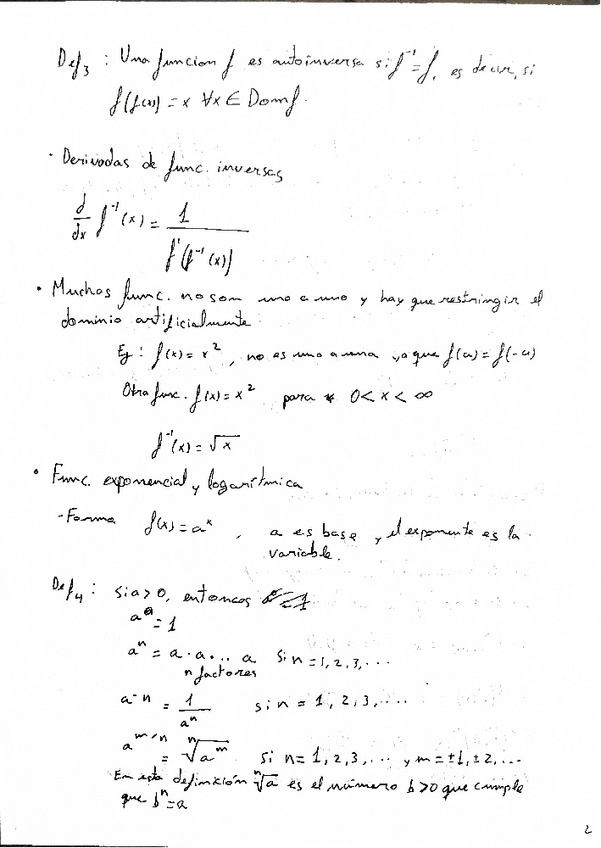 Def₃ : Una funcion f es autoinversa si f⁻¹=f, es decir, si
f(f(x)) = x ∀x ∈ Dom f.
· Derivadas de func. inversas
d/dx f⁻¹(x) = 1 / f'(f⁻¹(x))
• Muchas func. no son uno a uno y hay que restringir el
dominio artificialmente.
Ej : f(x) = x², no es uno a uno ya que f(a) = f(-a)
Otra func. f(x) = x² para 0 < x < ∞
f⁻¹(x) = √x
• Func. exponencial y logarítmica
- Forma f(x) = aˣ, a es base y el exponente es la
variable.
Def₄ : Si a > 0, entonces
a⁰ = 1
aⁿ = a · a ... a Si n = 1, 2, 3, ...
n factores
a⁻ⁿ = 1/aⁿ si n = 1, 2, 3, ...
a^(m/n) = ⁿ√aᵐ si n = 1, 2, 3, ... y m = ±1, ±2, ...
En esta definición ⁿ√a es el número b > 0 que cumple
que bⁿ = a
2